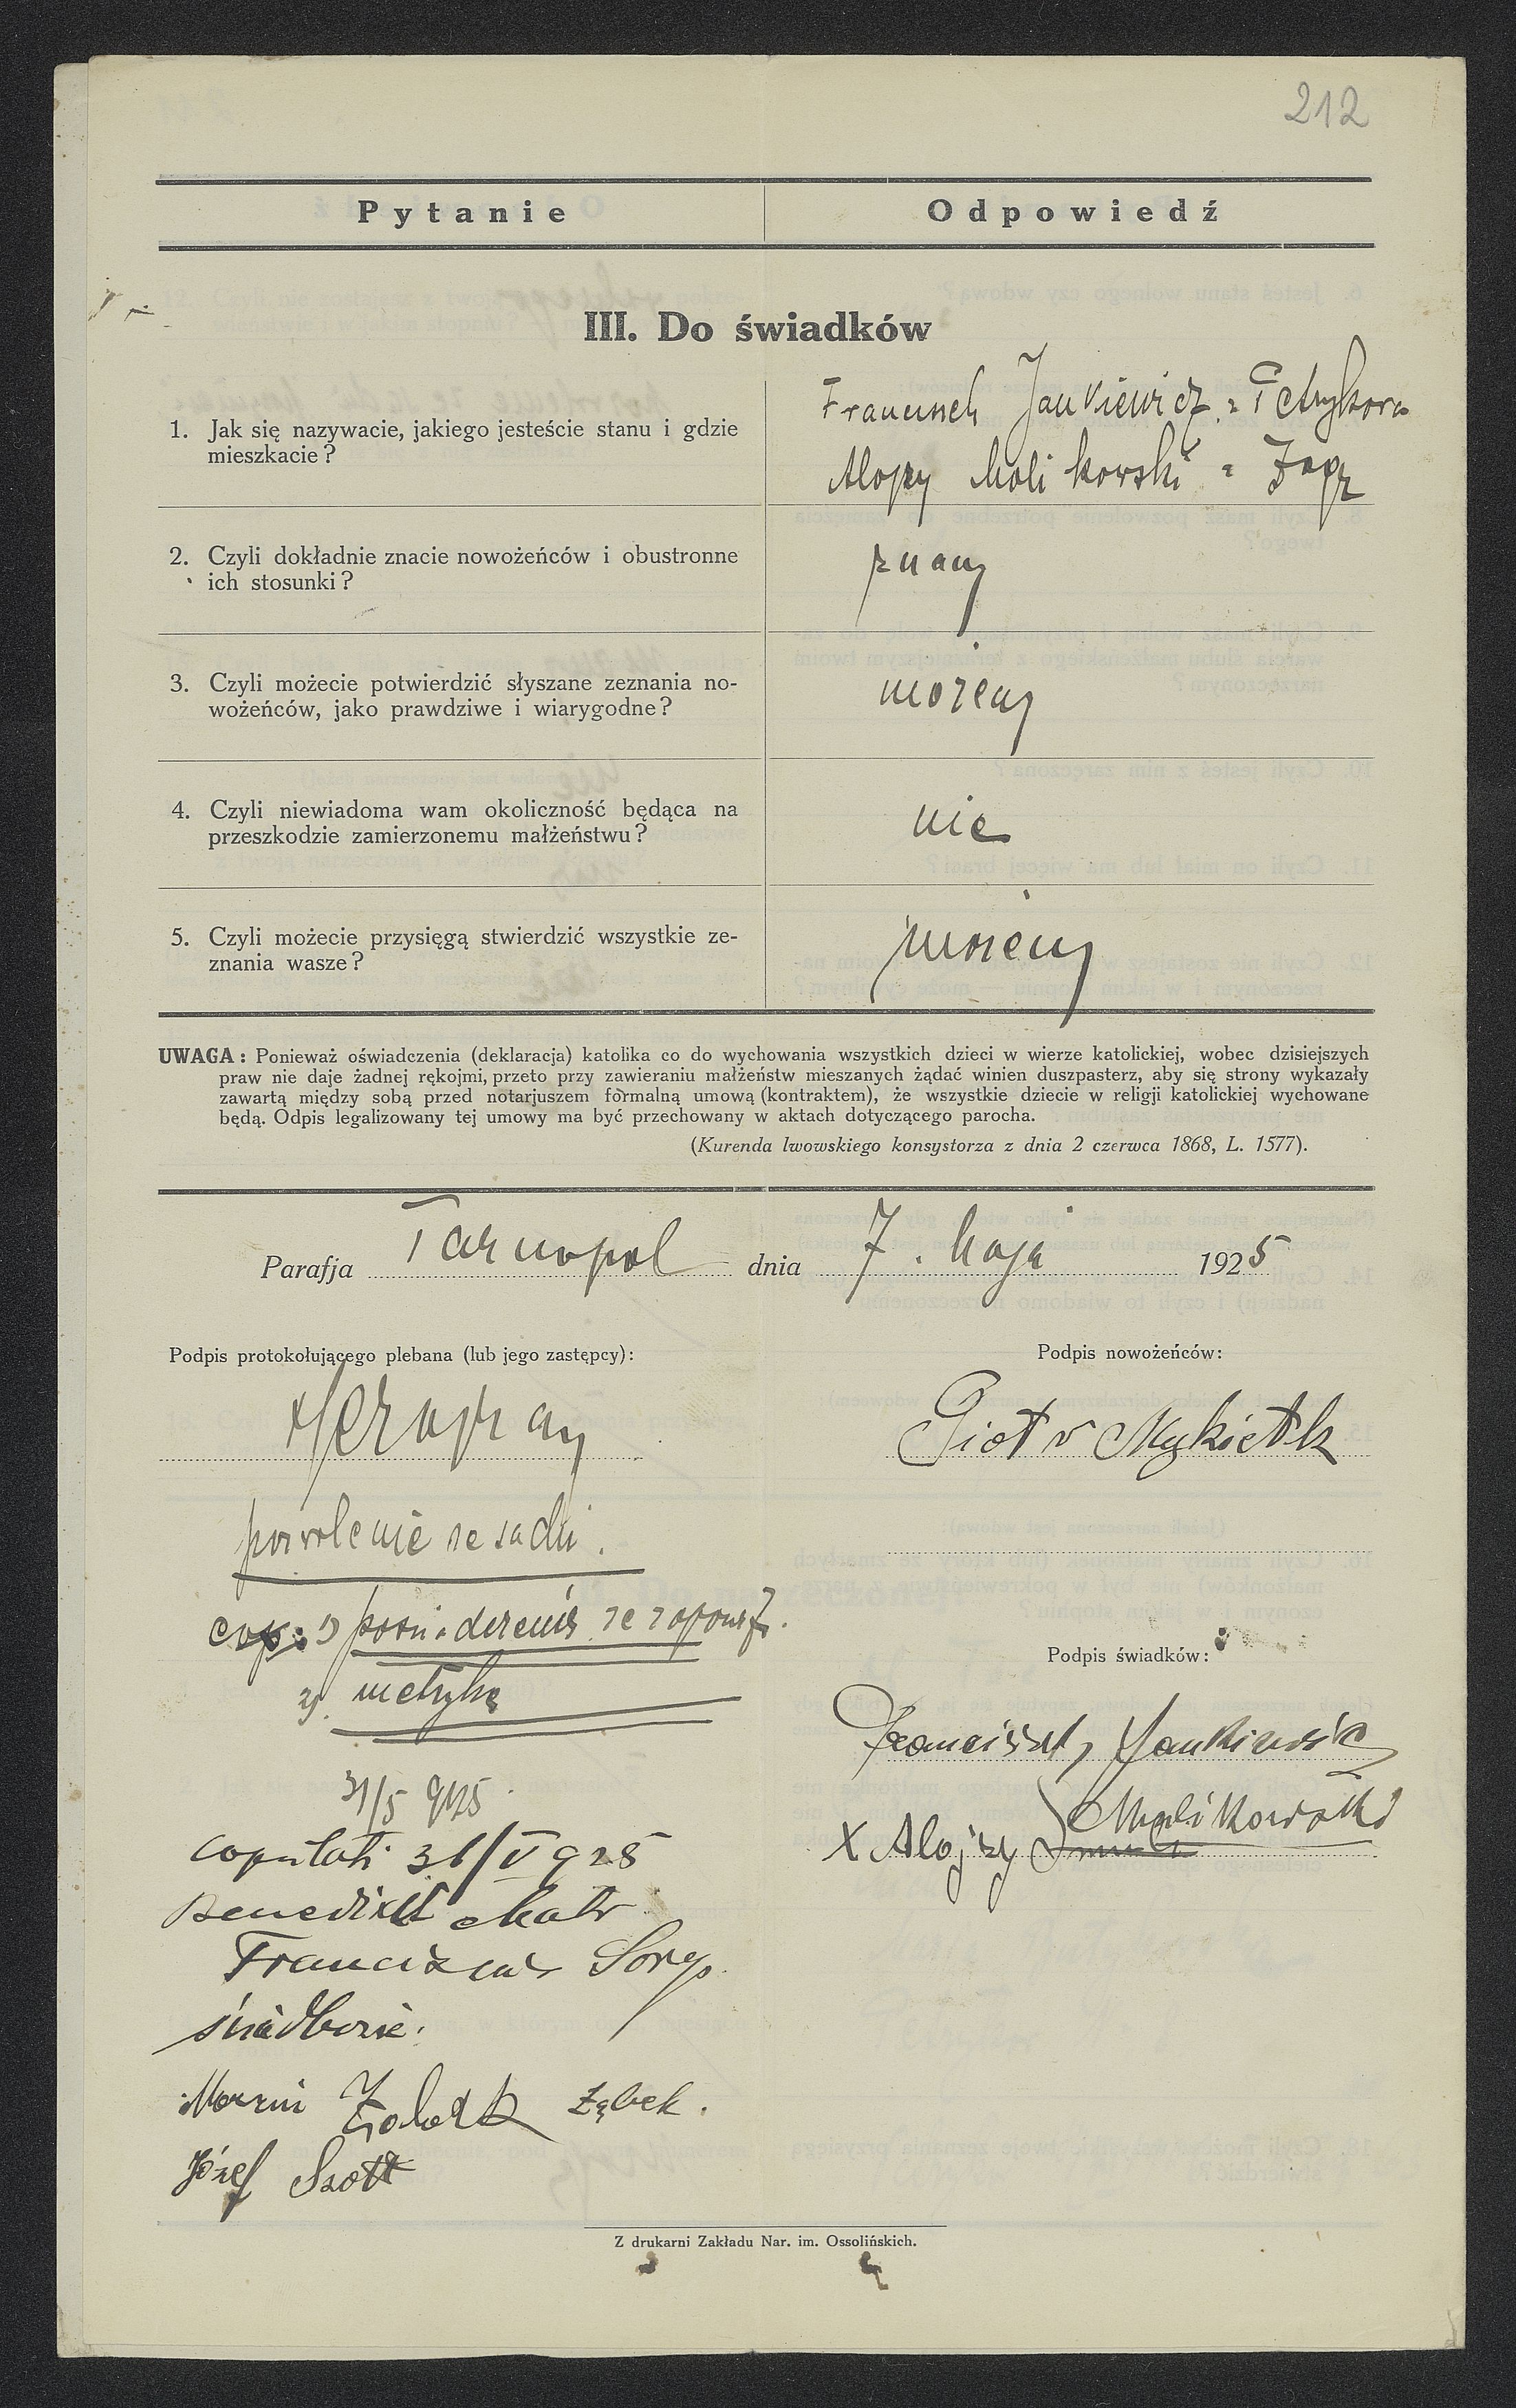 212
Pytanie Odpowiedź
III. Do świadków
1. Jak się nazywacie, jakiego jesteście stanu i gdzie
mieszkacie?
Franciszek Jankiewicz z Petrykowa
Alojzy Molikowski z Zagr
2. Czyli dokładnie znacie nowożeńców i obustronne
ich stosunki?
znamy
3. Czyli możecie potwierdzić słyszane zeznania no-
wożeńców, jako prawdziwe i wiarygodne?
możemy
4. Czyli niewiadoma wam okoliczność będąca na
przeszkodzie zamierzonemu małżeństwu?
nie
5. Czyli możecie przysięgą stwierdzić wszystkie ze-
znania wasze?
możemy
UWAGA: Ponieważ oświadczenia (deklaracja) katolika co do wychowania wszystkich dzieci w wierze katolickiej, wobec dzisiejszych
praw nie daje żadnej rękojmi, przeto przy zawieraniu małżeństw mieszanych żądać winien duszpasterz, aby się strony wykazały
zawartą między sobą przed notarjuszem formalną umową (kontraktem), że wszystkie dziecie w religji katolickiej wychowane
będą. Odpis legalizowany tej umowy ma być przechowany w aktach dotyczącego parocha.
(Kurenda lwowskiego konsystorza z dnia 2 czerwca 1868, L. 1577).
Parafja Tarnopol dnia 7. Maja 1925
Podpis protokołującego plebana (lub jego zastępcy):
Podpis nowożeńców:
Piotr Mykietk
pozwolenie ze sądu.
1) poświadczenie ze zapowz.
2) metrykę
Podpis świadków:
Franciszek Jankiewicz
X Alojzy Molikowski
31/5 925
copulati 31/V 925
Benedixit
Franciszek
świadkowie:
Marcin Ząbek
Józef Szott
Z drukarni Zakładu Nar. im. Ossolińskich.